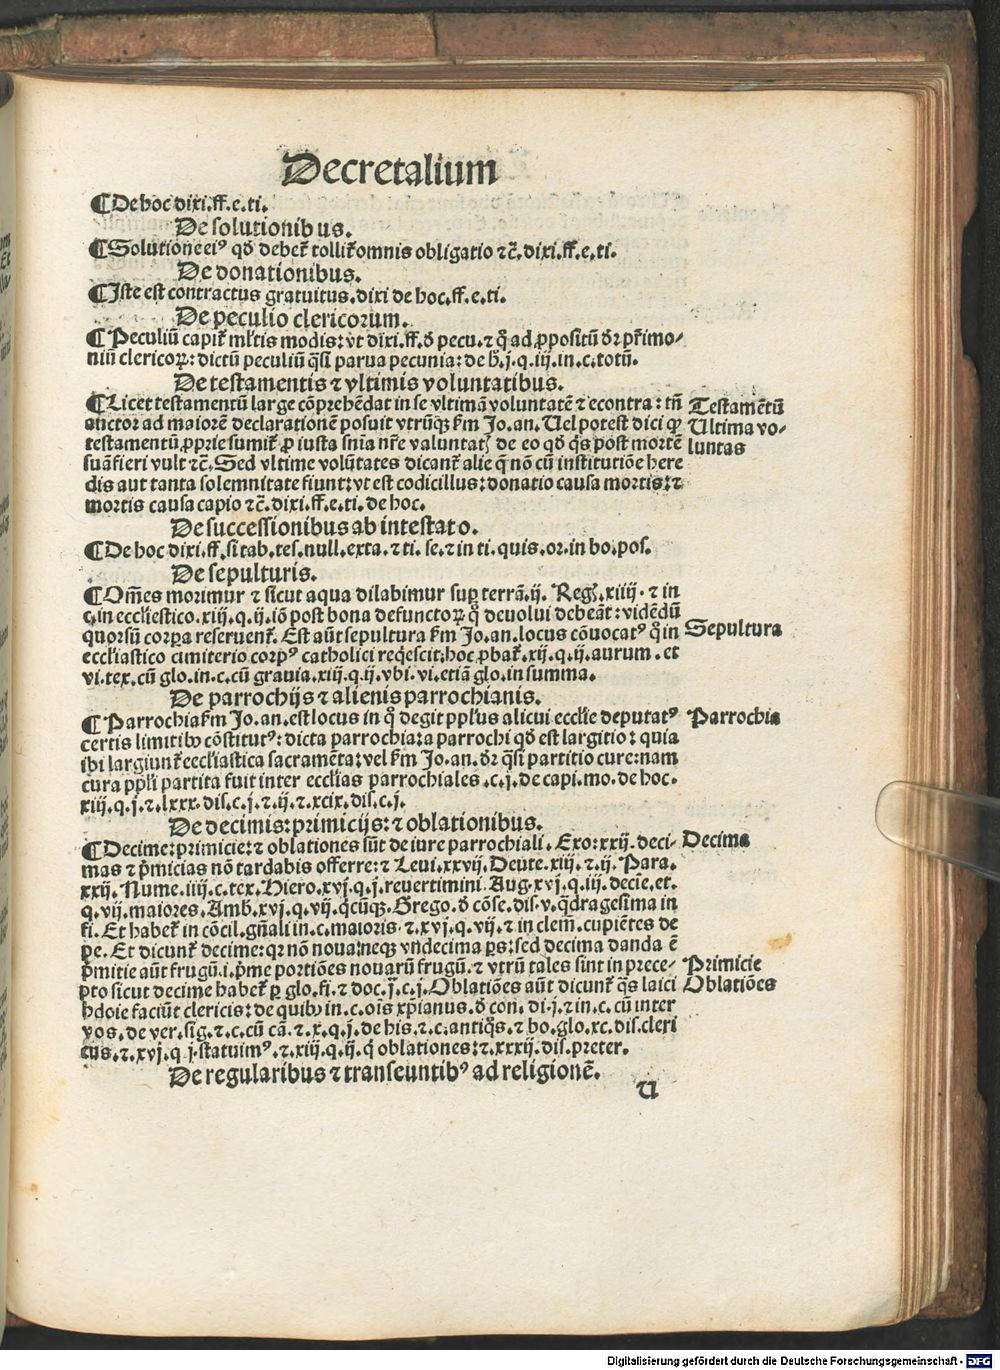 Decretalium
¶De hoc dixi.ff.e.ti.
De solutionibus.
¶Solutione eiꝰ qđ debet̃ tollit̃ omnis obligatio ⁊c̃.dixi.ff.e.ti.
De donationibus.
¶Iste est contractus gratuitus.dixi de hoc.ff.e.ti.
De peculio clericorum.
¶Peculiũ capit̃ ml̃tis modis: vt dixi.ff.đ pecu.⁊ q̃ ad ꝓpositũ đr: pr̃imo-
niũ clericoꝝ: dictũ peculiũ q̃si parua pecunia: de h̃.j.q.iij.in.c.totũ.
De testamentis ⁊ vltimis voluntatibus.
¶Licet testamentũ large cõprehẽdat in se vltimã voluntatẽ ⁊ econtra: tñ
auctor ad maiorẽ declarationẽ posuit vtrũqꝫ fm̃ Jo.an. Uel potest dici ꝙ
testamentũ ꝓprie sumit̃ ꝓ iusta sñia nr̃e valuntatꝭ de eo qđ q̃s post mortẽ
suã fieri vult ⁊c̃. Sed vltime volũtates dicant̃ alie q̃ nõ cũ institutiõe here
dis aut tanta solemnitate fiunt: vt est codicillus: donatio causa mortis: ⁊
mortis causa capio ⁊c̃.dixi.ff.e.ti.de hoc.
Testamẽtũ
Ultima vo-
luntas
De successionibus ab intestato.
¶De hoc dixi.ff.si tab.tes.null.exta.⁊ ti.se.⁊ in ti.quis.or.in bo.pos.
De sepulturis.
¶Om̃es morimur ⁊ sicut aqua dilabimur sup̱ terrã.ij. Regꝭ.xiiij.⁊ in
c.in eccl̃iestico.xiij.q.ij.iõ post bona defunctoꝝ q̃ deuolui debeãt: vidẽdũ
quorsũ corp̱a reseruent̃. Est aũt sepultura fm̃ Jo.an.locus cõuocatꝰ q̃ in
eccl̃iastico cimiterio corpꝰ catholici req̃escit: hoc ꝓbat̃.xij.q.ij.aurum.et
vi.tex.cũ glo.in.c.cũ grauia.xiij.q.ij.vbi.vi.etiã glo.in summa.
Sepultura
De parrochijs ⁊ alienis parrochianis.
¶Parrochia fm̃ Jo.an.est locus in q̃ degit ppl̃us alicui eccl̃ie deputatꝰ
certis limitibꝰ cõstitutꝰ: dicta parrochia: a parrochi qđ est largitio: quia
ibi largiunt̃ eccl̃iastica sacramẽta: vel fm̃ Jo.an.đr q̃si partitio cure: nam
cura ppl̃i partita fuit inter eccl̃ias parrochiales.c.j.de capi.mo.de hoc.
xiij.q.j.⁊.lxxx.dis.c.j.⁊.ij.⁊.xcix.dis.c.j.
Parrochia
De decimis: primicijs: ⁊ oblationibus.
¶Decime: primicie: ⁊ oblationes sũt de iure parrochiali. Exo: xxij. deci-
mas ⁊ p̃micias nõ tardabis offerre: ⁊ Leui.xxvij. Deute.xiij.⁊.ij. Para.
xxij. Nume.iiij.c.tex. Hiero.xvj.q.j.reuertimini. Aug.xvj.q.iij.decie.et.
q.vij.maiores. Amb̃.xvj.q.vij.q̃cũqꝫ. Grego.đ cõse.dis.v.q̃dragesima in
fi. Et habet̃ in cõcil.gñali in.c.maioris.⁊.xvj.q.vij.⁊ in clem̃.cupiẽtes de
pe. Et dicunt̃ decime: qꝛ nõ noua: neqꝫ vndecima p̱s: sed decima danda ẽ
p̃mitie aũt frugũ.i.p̃me portiões nouarũ frugũ.⁊ vtrũ tales sint in prece-
pto sicut decime habet̃ p̱ glo.fi.⁊ doc.j.c.j. Oblatiões aũt dicunt̃ q̃s laici
hdoie faciũt clericis: de quibꝰ in.c.ois xp̃ianus.đ con.di.j.⁊ in.c.cũ inter
vos.de ver.sig.⁊.c.cũ cã.⁊.x.q.j.de his.⁊.c.antiq̃s.⁊ ho.glo.xc.dis.cleri
cus.⁊.xvj.q.j.statuimꝰ.⁊.xiij.q.ij.q̃ oblationes: ⁊.xxxij.dis.preter.
Decima
Primicie
Oblatiões
De regularibus ⁊ transeuntibꝰ ad religionẽ.
U
Digitalisierung gefördert durch die Deutsche Forschungsgemeinschaft - DFG